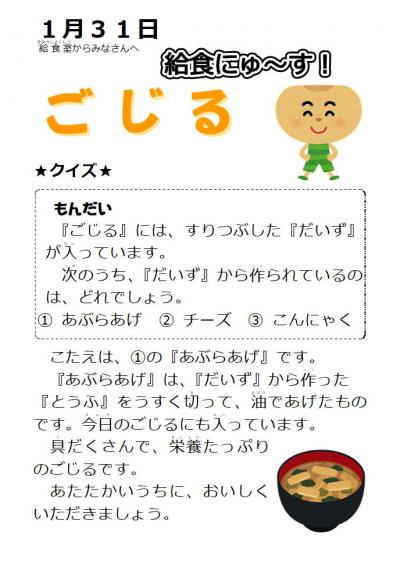 １月３１日
給食室からみなさんへ
給食にゅ～す！
ごじる
★クイズ★
もんだい
『ごじる』には、すりつぶした『だいず』
が入っています。
次のうち、『だいず』から作られているの
は、どれでしょう。
① あぶらあげ　② チーズ　③ こんにゃく
こたえは、①の『あぶらあげ』です。
『あぶらあげ』は、『だいず』から作った
『とうふ』をうすく切って、油であげたもの
です。今日のごじるにも入っています。
具だくさんで、栄養たっぷり
のごじるです。
あたたかいうちに、おいしく
いただきましょう。